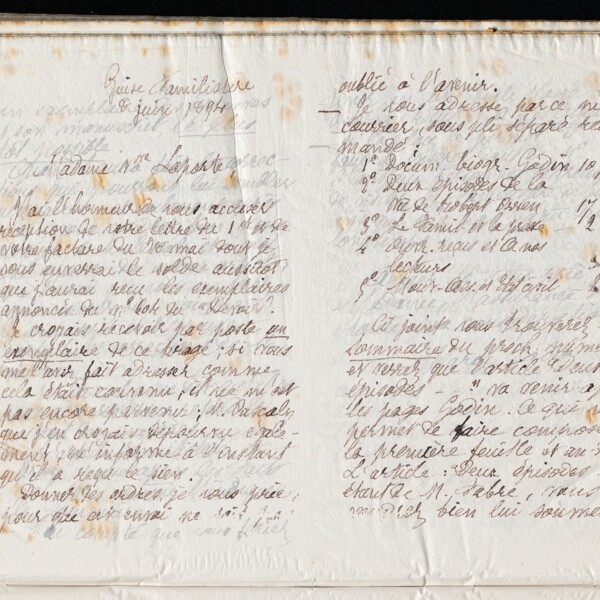 Guise Familistère
8 juin 1894
Madame Vve Laporte,
J'ai l'honneur de vous accuser
réception de votre lettre du 1er et de
votre facture du 20 mai dont je
vous enverrai le solde aussitôt
que j'aurai reçu les exemplaires
annoncés du No du "Devoir".
Je croyais recevoir par poste un
exemplaire de ce tirage; si vous
me l'avez fait adresser comme
cela était convenu, il ne m'est
pas encore parvenu; M. Pascaly
que j'en croyais dépourvu égale-
ment, m'informe à l'instant
qu'il a reçu le sien.
Donnez des ordres, je vous prie,
pour que cet envoi ne soit
oublié à l'avenir.
Je vous adresse par ce
courrier, sous pli séparé
mandé:
1o Docum. biogr. Godin 10
2o Deux épisodes de la
vie de Robert Owen 17
3o Le Famil. et la presse 2
4o Ouvr. reçus et à nos
lecteurs
5o Mouv. Coop. et Etat civil
Ci joint vous trouverez
sommaire du proch. numé
et verrez que l'article "Deux
épisodes" va venir
les pages Godin. Ce qui
permet de faire compos
la première feuille et
L'article: Deux épisodes
étant de M. Fabre, vous
voudrez bien lui soume